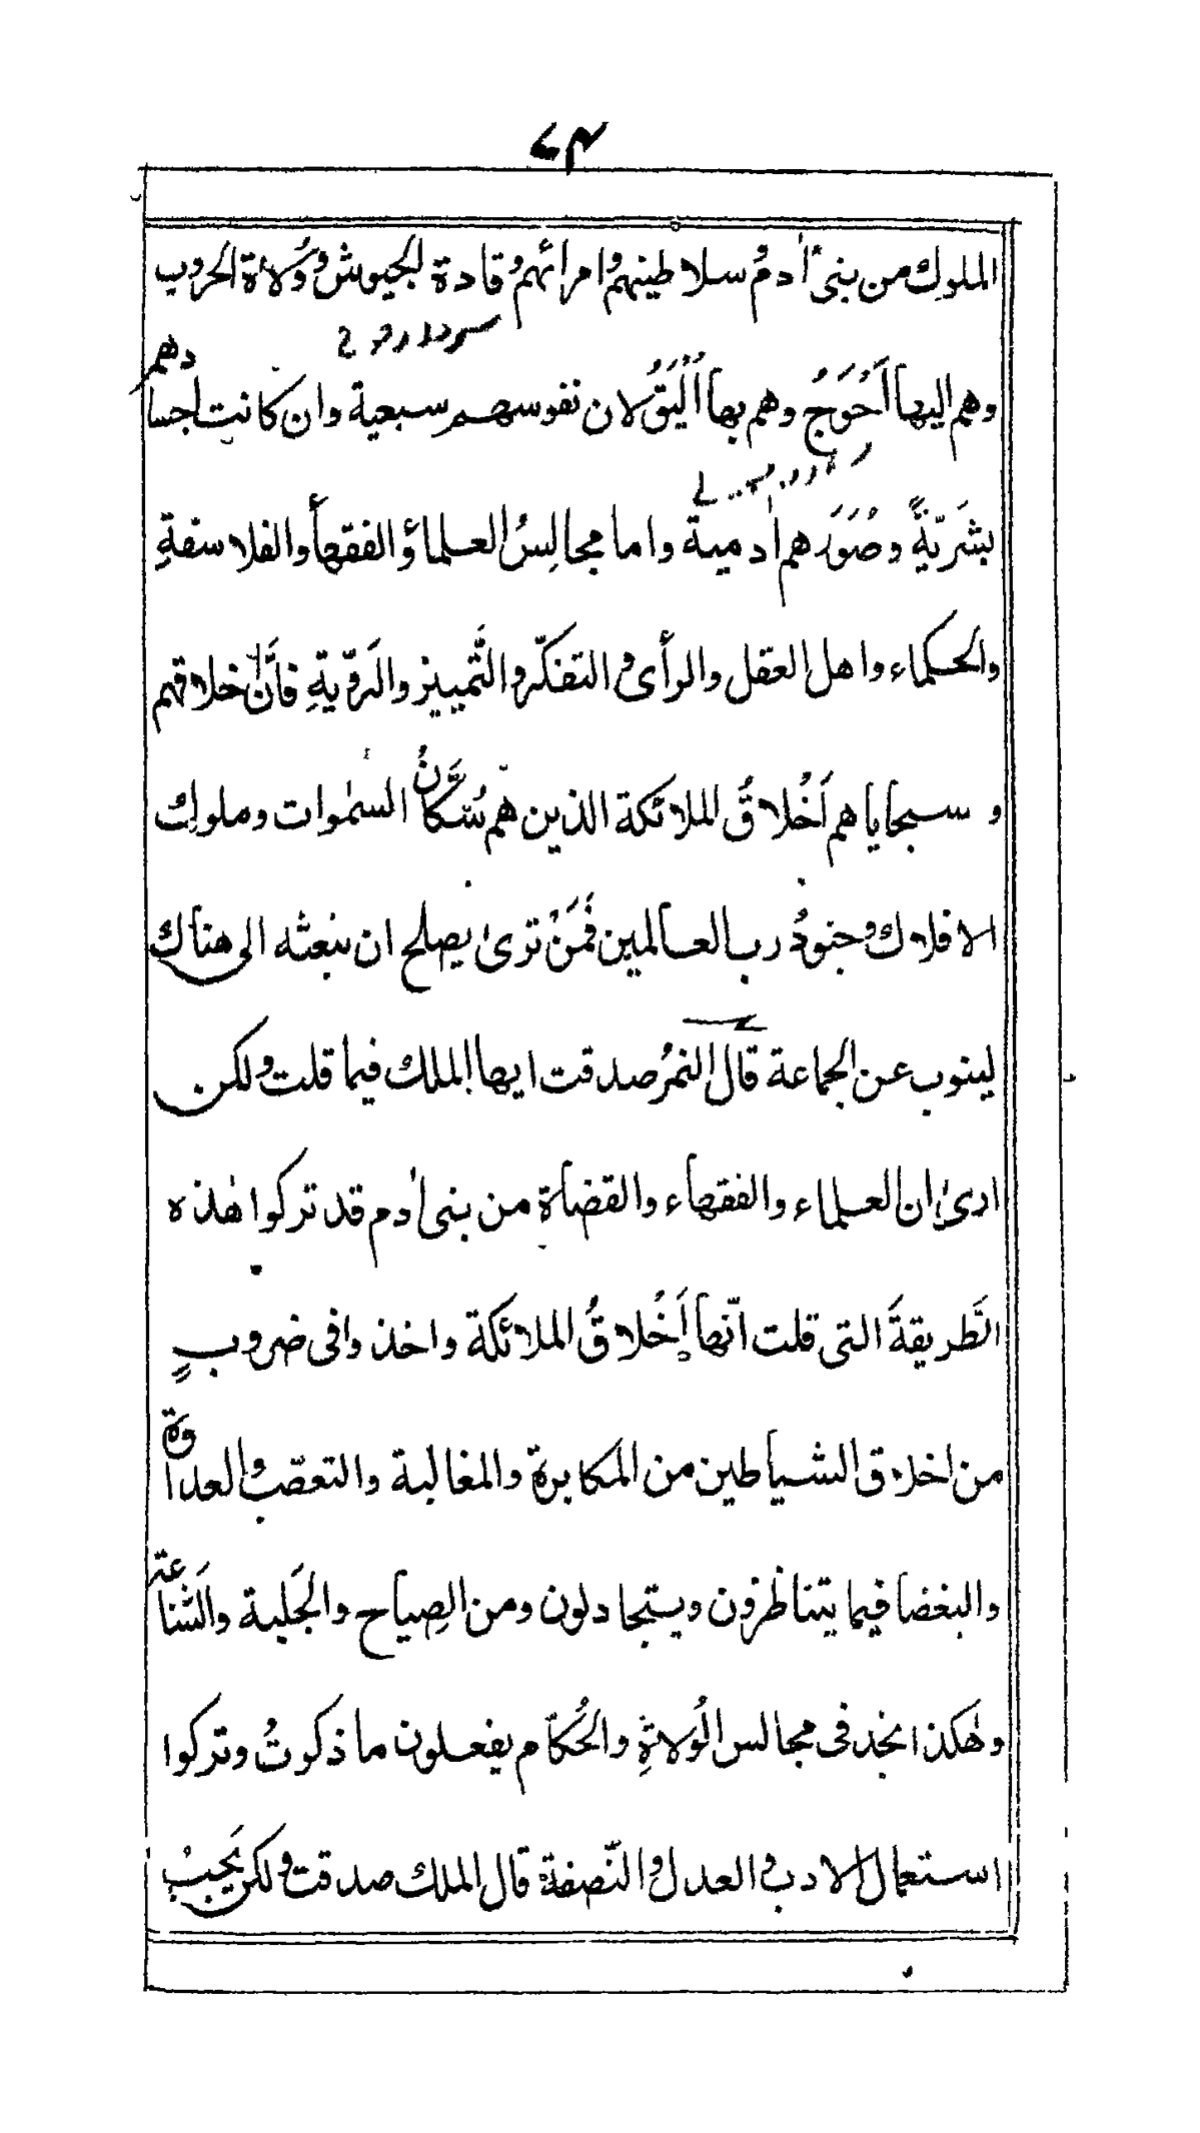 ٧٣
الملوك من بنى اٰدم و سلاطينهم و امرائهم و قادة الجيوش و وُلاة الحروب
وهم اليها اَحْوَجُ وهم بها اَلْيَقُ لان نفوسهم سبعية وان كانت اجسادهم
بشَرِيّةً وصُوَرهم اٰدمية واما مجالِسُ العلماؤ الفقهاأ والفلاسفةِ
والحكماء واهل العقل والرأى و التفكّر و التَّمييز والرَوِّيةِ فانَّ اخلاقهم
و سجاياهم اَخْلاقُ الملائكة الذين هم سُكَّانُ السمٰوات وملوك
الافلاك و جنودُ رب العالمين فَمَنْ ترىٰ يصلح ان نبعثه الى هناك
لينوب عن الجماعة قال النمرُ صدقت ايها الملك فيما قلت ولكن
ارىٰ ان العلماء والفقهاء والقضاة من بنى اٰدم قد تركوا هٰذه
الطَّريقةَ التى قلت انّها اَخْلاقُ الملائكة واخذوا فى ضروبٍ
من اخلاق الشياطين من المكابرة والمغالبة والتعصّب و العداوة
والبغضا فيما يتناظرون ويتجادلون ومن الصِياح والجَلبة والشَناعة
وهٰكذا نجد فى مجالس الوُلاةِ والحُكّام يفعلون ما ذكرتُ وتركوا
استعمال الادب و العدل و النّصفة قال الملك صدقت ولكن يَجِبُ